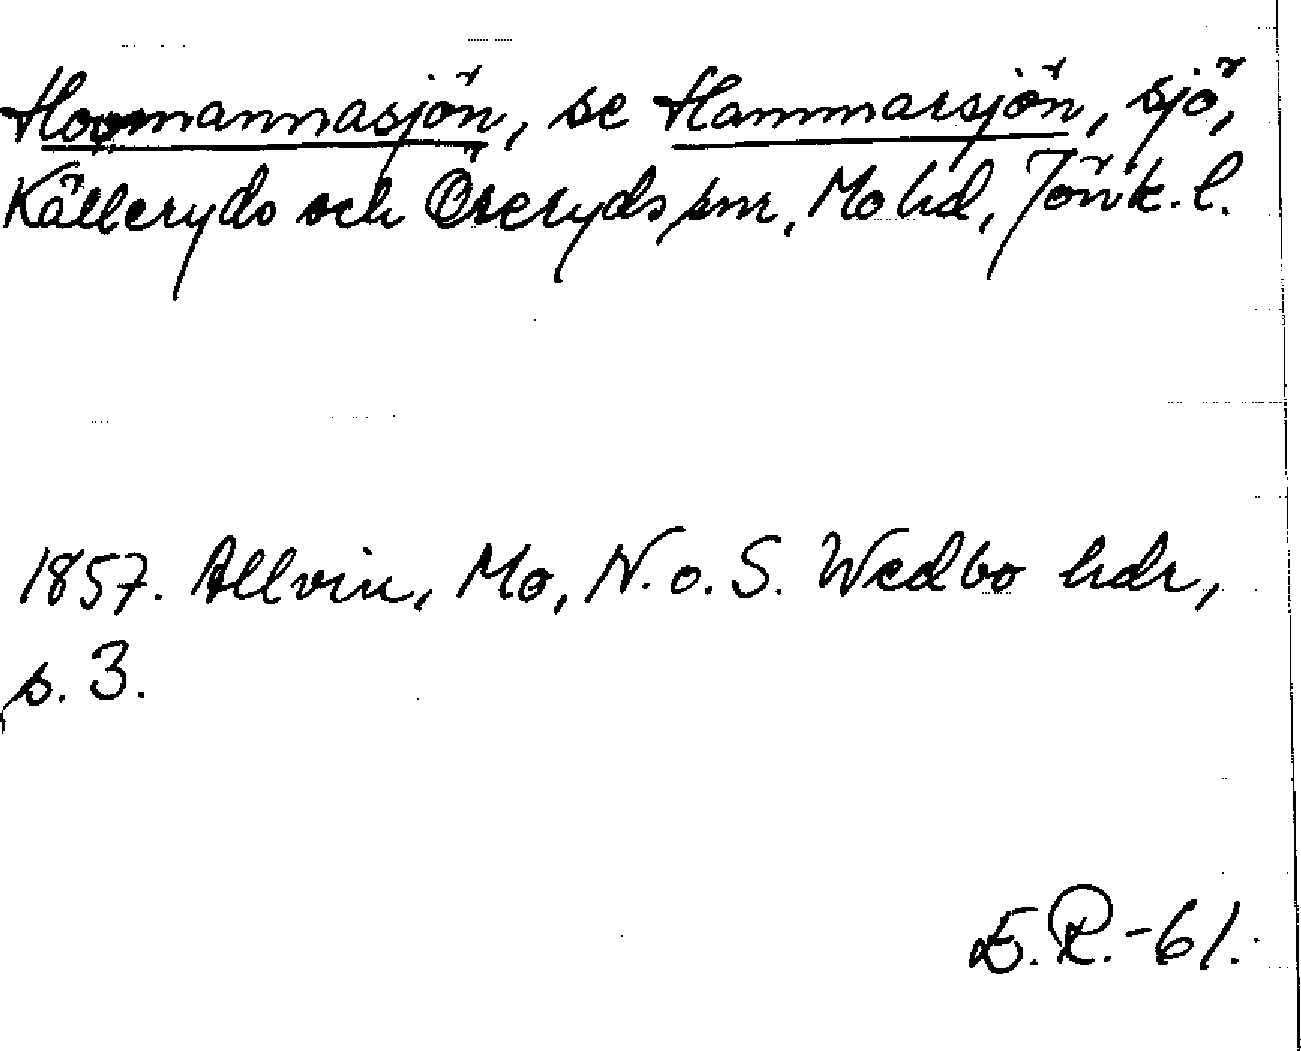 Hovmannasjön, se Hammarsjön, sjö,
Källeryds och Öreryds snr, Mo hd, Jönk. l.
1857. Allvin, Mo, N. o. S. Wedbo hdr,
s. 3.
E.R.-61.